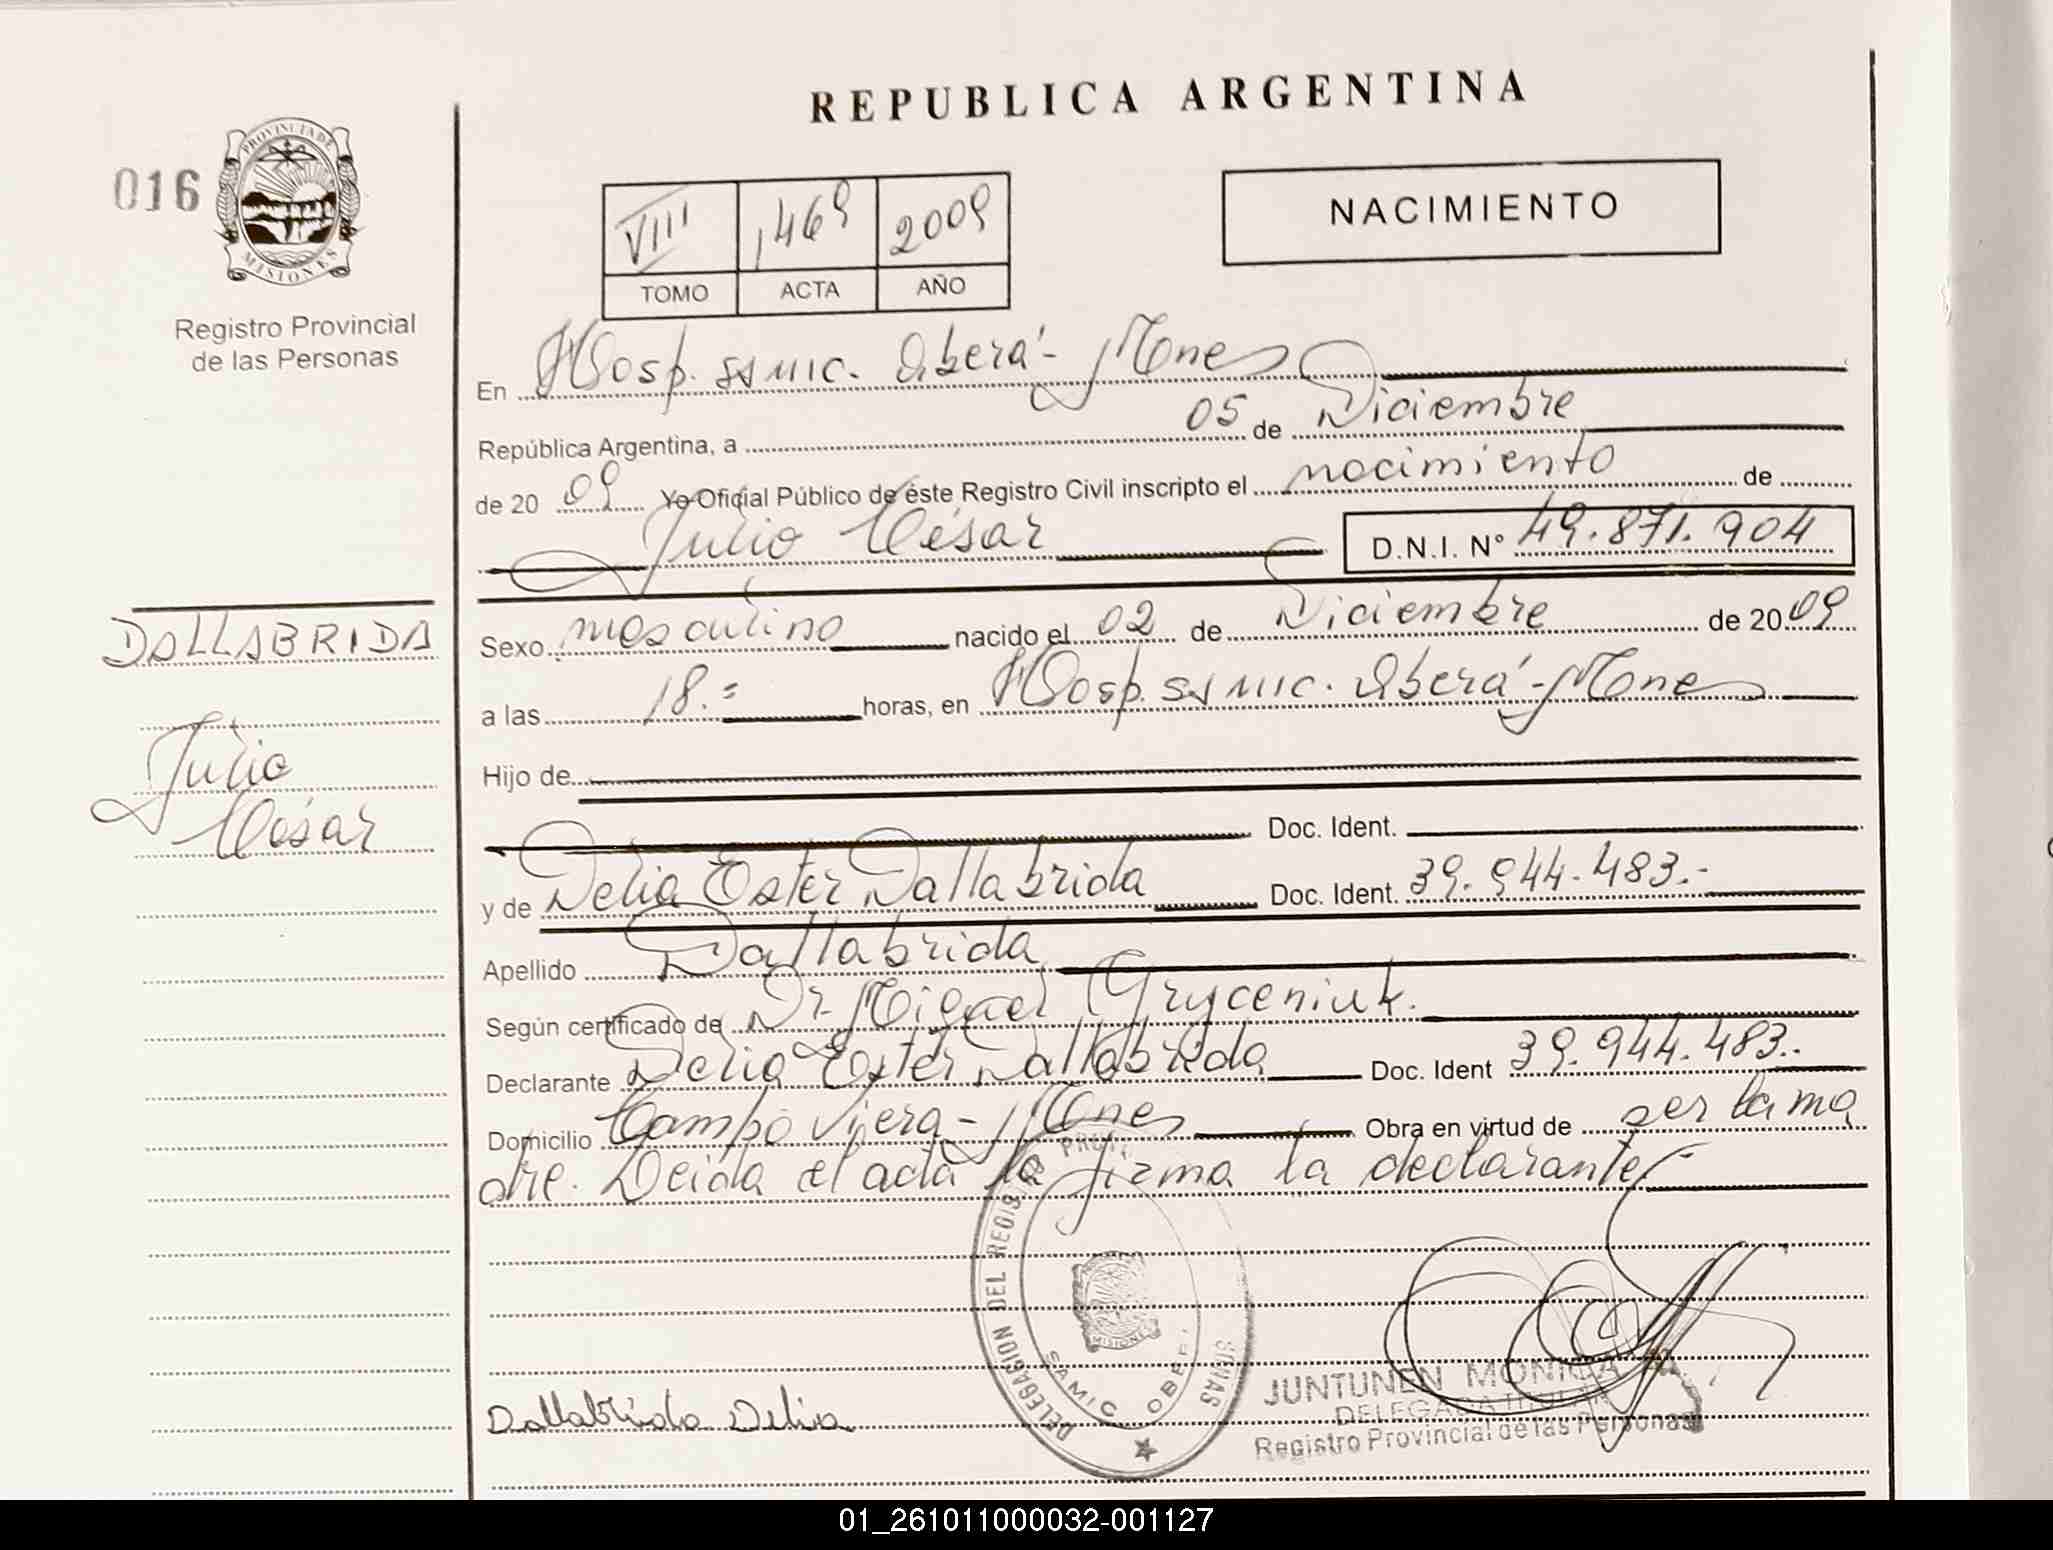 REPUBLICA ARGENTINA
016
PROVINCIA DE
MISIONES
Registro Provincial
de las Personas
VIII 1469 2009
TOMO ACTA AÑO
NACIMIENTO
En Hosp. SAMIC. Oberá - Mnes
República Argentina, a 05 de Diciembre
de 20 09 Yo Oficial Público de éste Registro Civil inscripto el nacimiento de
Julio César D.N.I. N° 49.871.904
DALLABRIDA
Julio
César
Sexo masculino nacido el 02 de Diciembre de 20 09
a las 18.= horas, en Hosp. SAMIC. Oberá - Mnes
Hijo de
Doc. Ident.
y de Delia Ester Dallabrida Doc. Ident. 39.944.483.-
Apellido Dallabrida
Según certificado de Dr. Miguel Gryceniuk.
Declarante Delia Ester Dallabrida Doc. Ident 39.944.483.-
Domicilio Campo Viera - Mnes Obra en virtud de ser la ma
dre. Leida el acta la firma la declarante.-
DELEGACION DEL REGIS
SAMIC OBE
MISIONES
Dallabrida Delia
JUNTUNEN MONICA
DELEGADA TITULAR
Registro Provincial de las Personas
01_261011000032-001127